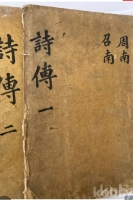 周南
召南
詩傳 一
詩傳 二